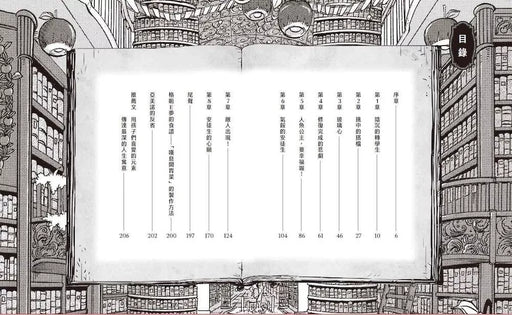 目錄
序章 6
第1章 陰沉的轉學生 10
第2章 鏡中的搭檔 27
第3章 玻璃心 46
第4章 修復完成的悲劇 61
第5章 人魚公主，要幸福喔！ 86
第6章 氣餒的安徒生 104
第7章 敵人出現！ 124
第8章 安徒生的心願 170
尾聲 197
格帕王夢的食譜——「嘆息開胃菜」的製作方法 200
亞美諾的反省 202
推薦文 用孩子們喜愛的元素
傳達最深的人生寓意 206